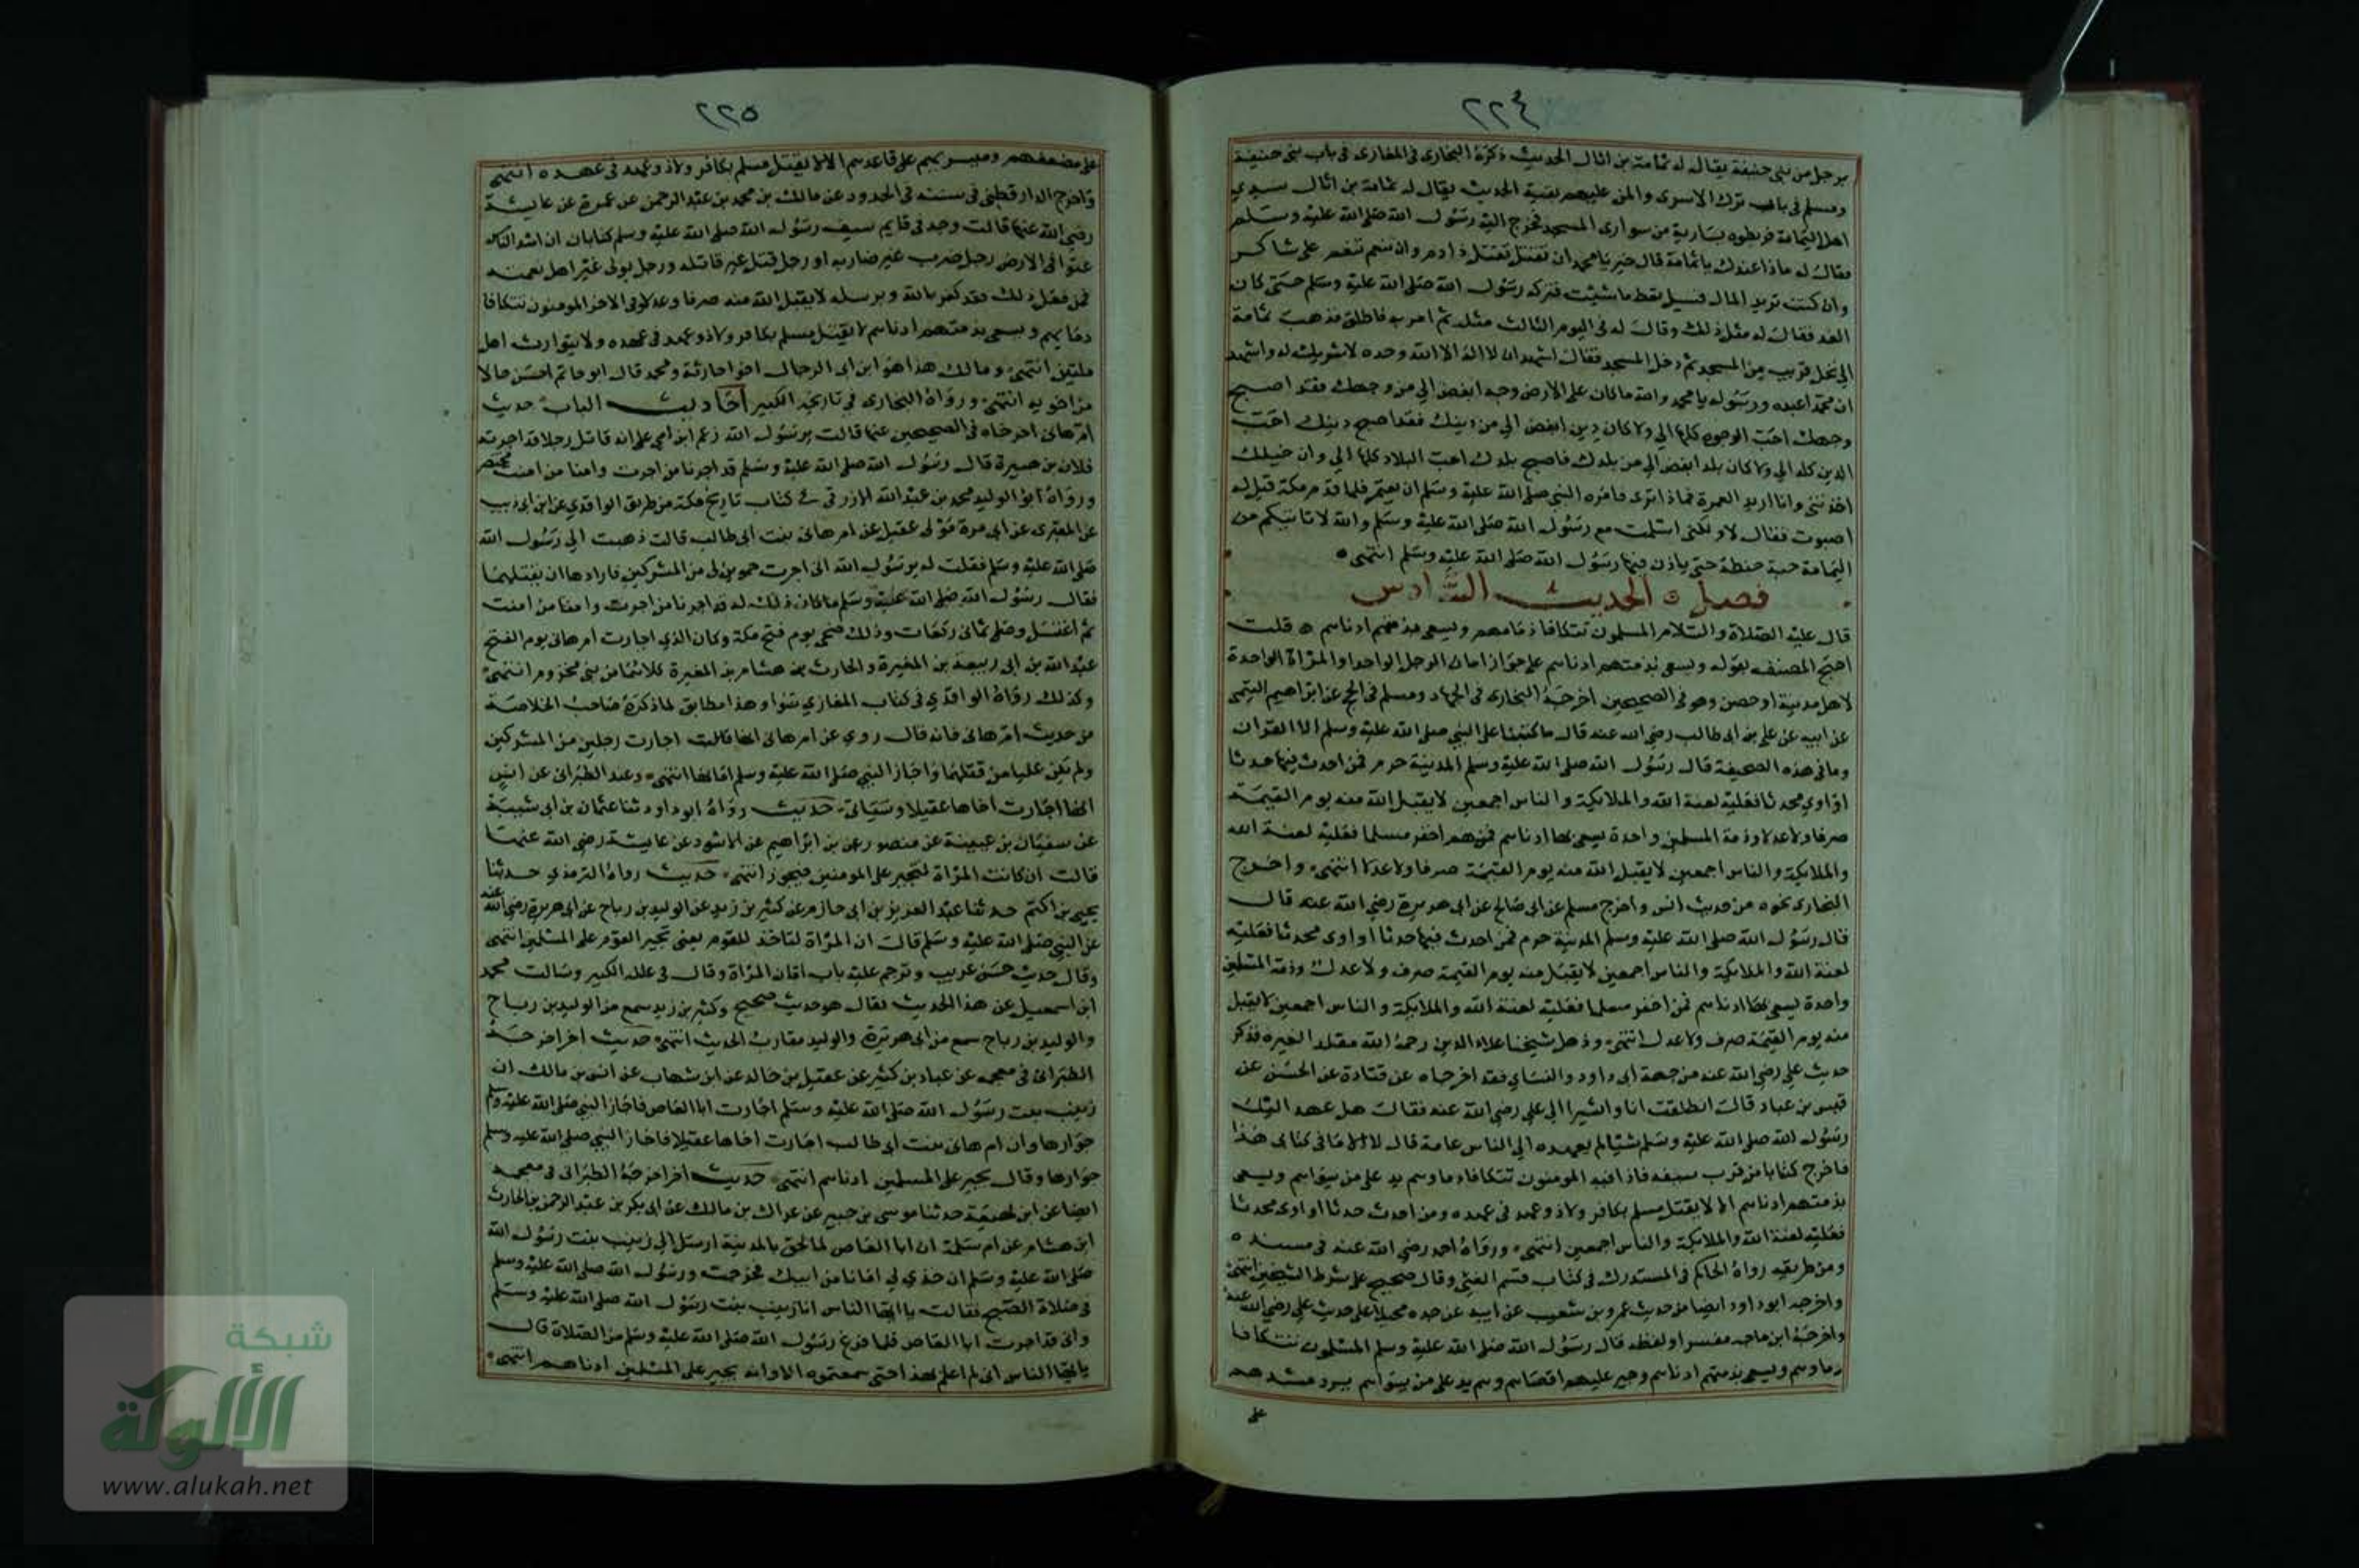 ٢٢٤
برجل من بني حنيفة يقال له ثمامة بن اثال الحديث ذكره البخاري في المغازي في باب بني حنيفة
ومسلم في باب ترك الاسرى والمن عليهم بقية الحديث يقال له ثمامة بن اثال سيدي
اهل اليمامة فربطوه بسارية من سواري المسجد فخرج اليه رسول الله صلى الله عليه وسلم
فقال له ماذا عندك يا ثمامة قال خير يا محمد ان تقتل تقتل ذا دم وان تنعم تنعم على شاكر
وان كنت تريد المال فسل تعط ما شئت فتركه رسول الله صلى الله عليه وسلم حتى كان
الغد فقال له مثل ذلك وقال له في اليوم الثالث مثله ثم امر به فاطلق فذهب ثمامة
الى نخل قريب من المسجد ثم دخل المسجد فقال اشهد ان لا اله الا الله وحده لا شريك له واشهد
ان محمدا عبده ورسوله يا محمد والله ما كان على الارض وجه ابغض الي من وجهك فقد اصبح
وجهك احب الوجوه كلها الي ولا كان دين ابغض الي من دينك فقد اصبح دينك احب
الدين كله الي ولا كان بلد ابغض الي من بلدك فاصبح بلدك احب البلاد كلها الي وان خيلك
اخذتني وانا اريد العمرة فماذا ترى فامره النبي صلى الله عليه وسلم ان يعتمر فلما قدم مكة قيل له
اصبوت فقال لا ولكني اسلمت مع رسول الله صلى الله عليه وسلم والله لا تاتيكم من
اليمامة حبة حنطة حتى ياذن فيها رسول الله صلى الله عليه وسلم انتهى ٥
فصل ٥ الحديث السادس
قال عليه الصلاة والسلام المسلمون تتكافا دماهم ويسعى بذمتهم ادناهم ٥ قلت
احتج المصنف بقوله ويسعى بذمتهم ادناهم على جواز امان الرجل الواحد او المراة الواحدة
لاهل مدينة او حصن وهو في الصحيحين اخرجه البخاري في الجهاد ومسلم في الحج عن ابراهيم التيمي
عن ابيه عن علي بن ابي طالب رضي الله عنه قال ما كتبنا على النبي صلى الله عليه وسلم الا القران
وما في هذه الصحيفة قال رسول الله صلى الله عليه وسلم المدينة حرم فمن احدث فيها حدثا
او اوي محدثا فعليه لعنة الله والملايكة والناس اجمعين لا يقبل الله منه يوم القيمة
صرفا ولا عدلا وذمة المسلمين واحدة يسعى بها ادناهم فمن اخفر مسلما فعليه لعنة الله
والملايكة والناس اجمعين لا يقبل الله منه يوم القيمة صرفا ولا عدلا انتهى واخرج
البخاري نحوه من حديث انس واخرج مسلم عن ابي صالح عن ابي هريرة رضي الله عنه قال
قال رسول الله صلى الله عليه وسلم المدينة حرم فمن احدث فيها حدثا او اوى محدثا فعليه
لعنة الله والملايكة والناس اجمعين لا يقبل منه يوم القيمة صرف ولا عدل وذمة المسلمين
واحدة يسعى بها ادناهم فمن اخفر مسلما فعليه لعنة الله والملايكة والناس اجمعين لا يقبل
منه يوم القيمة صرف ولا عدل انتهى وذهل شيخنا علاء الدين رحمه الله مقلدا لغيره فذكر
حديث علي رضي الله عنه من جهة ابي داود والنساي فقد اخرجاه عن قتادة عن الحسن عن
قيس بن عباد قال انطلقت انا والشتر الى علي رضي الله عنه فقال هل عهد اليك
رسول الله صلى الله عليه وسلم شيئا لم يعهده الى الناس عامة قال لا الا ما في كتابي هذا
فاخرج كتابا من قرب سيفه فاذا فيه المومنون تتكافا دماوهم وهم يد على من سواهم ويسعى
بذمتهم ادناهم الا لا يقتل مسلم بكافر ولا ذو عهد في عهده ومن احدث حدثا او اوى محدثا
فعليه لعنة الله والملايكة والناس اجمعين انتهى ورواه احمد رضي الله عنه في مسنده ٥
ومن طريقه رواه الحاكم في المستدرك في كتاب قسم الفيء وقال صحيح على شرط الشيخين انتهى
واخرجه ابو داود ايضا من حديث عمرو بن شعيب عن ابيه عن جده محيلا على حديث علي رضي الله عنه
واخرجه ابن ماجه مفسرا ولفظه قال رسول الله صلى الله عليه وسلم المسلمون تتكافا
دماوهم ويسعى بذمتهم ادناهم وجير عليهم اقصاهم وهم يد على من سواهم يرد مشدهم
على
٢٢٥
على مضعفهم ومتسريهم على قاعدهم الا لا يقتل مسلم بكافر ولا ذو عهد في عهده انتهى
واخرج الدارقطني في سننه في الحدود عن مالك بن محمد بن عبد الرحمن عن عمرة عن عايشة
رضي الله عنها قالت وجد في قايم سيف رسول الله صلى الله عليه وسلم كتابان ان اشد الناس
عتوا في الارض رجل ضرب غير ضاربه او رجل قتل غير قاتله ورجل تولى غير اهل نعمته
فمن فعل ذلك فقد كفر بالله وبرسله لا يقبل الله منه صرفا ولا عدلا وفي الاخر المومنون تتكافا
دماهم ويسعى بذمتهم ادناهم لا يقتل مسلم بكافر ولا ذو عهد في عهده ولا يتوارث اهل
ملتين انتهى ومالك هذا هو ابن ابي الرجال اخو حارثة ومحمد قال ابو حاتم احسن حالا
من اخويه انتهى ورواه البخاري في تاريخه الكبير احاديث الباب حديث
ام هاني اخرجاه في الصحيحين عنها قالت يرسول الله زعم ابن امي علي انه قاتل رجلا قد اجرته
فلان بن هبيرة قال رسول الله صلى الله عليه وسلم قد اجرنا من اجرت وامنا من امنت مختصر
ورواه ابو الوليد محمد بن عبد الله الازرقي في كتاب تاريخ مكة من طريق الواقدي عن ابن ابي ذيب
عن المقبري عن ابي مرة مولى عقيل عن ام هاني بنت ابي طالب قالت ذهبت الى رسول الله
صلى الله عليه وسلم فقلت له يرسول الله اني اجرت حموين لي من المشركين فاراد هذا ان يقتلهما
فقال رسول الله صلى الله عليه وسلم ما كان ذلك له قد اجرنا من اجرت وامنا من امنت
ثم اغتسل وصلى ثماني ركعات وذلك ضحى يوم فتح مكة وكان الذي اجارت ام هاني يوم الفتح
عبد الله بن ابي ربيعة بن المغيرة والحارث بن هشام بن المغيرة كلاهما من بني مخزوم انتهى
وكذلك رواه الواقدي في كتاب المغازي سوا وهذا مطابق لما ذكره صاحب الخلاصة
من حديث ام هاني فانه قال روي عن ام هاني انها قالت اجارت رجلين من المشركين
ولم تمكن عليا من قتلهما واجاز النبي صلى الله عليه وسلم امانها انتهى وعند الطبراني عن انس
انها اجارت اخاها عقيلا وسياتي حديث رواه ابو داود ثنا عثمان بن ابي شيبة
عن سفيان بن عيينة عن منصور عن بن ابراهيم عن الاسود عن عايشة رضي الله عنها
قالت ان كانت المراة لتجير على المومنين فيجوز انتهى حديث رواه الترمذي حدثنا
يحيى بن اكثم حدثنا عبد العزيز بن ابي حازم عن كثير بن زيد عن الوليد بن رباح عن ابي هريرة رضي الله عنه
عن النبي صلى الله عليه وسلم قال ان المراة لتاخذ للقوم يعني تجير القوم على المسلمين انتهى
وقال حديث حسن غريب وترجم عليه باب امان المراة وقال في علله الكبير وسالت محمد
ابن اسمعيل عن هذا الحديث فقال هو حديث صحيح وكثير بن زيد سمع من الوليد بن رباح
والوليد بن رباح سمع من ابي هريرة والوليد مقارب الحديث انتهى حديث اخر اخرجه
الطبراني في معجمه عن عباد بن كثير عن عقيل بن خالد عن ابن شهاب عن انس بن مالك ان
زينب بنت رسول الله صلى الله عليه وسلم اجارت ابا العاص فاجاز النبي صلى الله عليه وسلم
جوارها وان ام هاني بنت ابي طالب اجارت اخاها عقيلا فاجاز النبي صلى الله عليه وسلم
جوارها وقال يجير على المسلمين ادناهم انتهى حديث اخر اخرجه الطبراني في معجمه
ايضا عن ابن لهيعة حدثنا موسى بن جبير عن عراك بن مالك عن ابي بكر بن عبد الرحمن بن الحارث
ابن هشام عن ام سلمة ان ابا العاص لما لحق بالمدينة ارسل الى زينب بنت رسول الله
صلى الله عليه وسلم ان خذي لي امانا من ابيك فخرجت ورسول الله صلى الله عليه وسلم
في صلاة الصبح فقالت يا ايها الناس انا زينب بنت رسول الله صلى الله عليه وسلم
واني قد اجرت ابا العاص فلما فرغ رسول الله صلى الله عليه وسلم من الصلاة قال
يا ايها الناس اني لم اعلم بهذا حتى سمعتموه الا وانه يجير على المسلمين ادناهم انتهى
شبكة
الألوكة
www.alukah.net